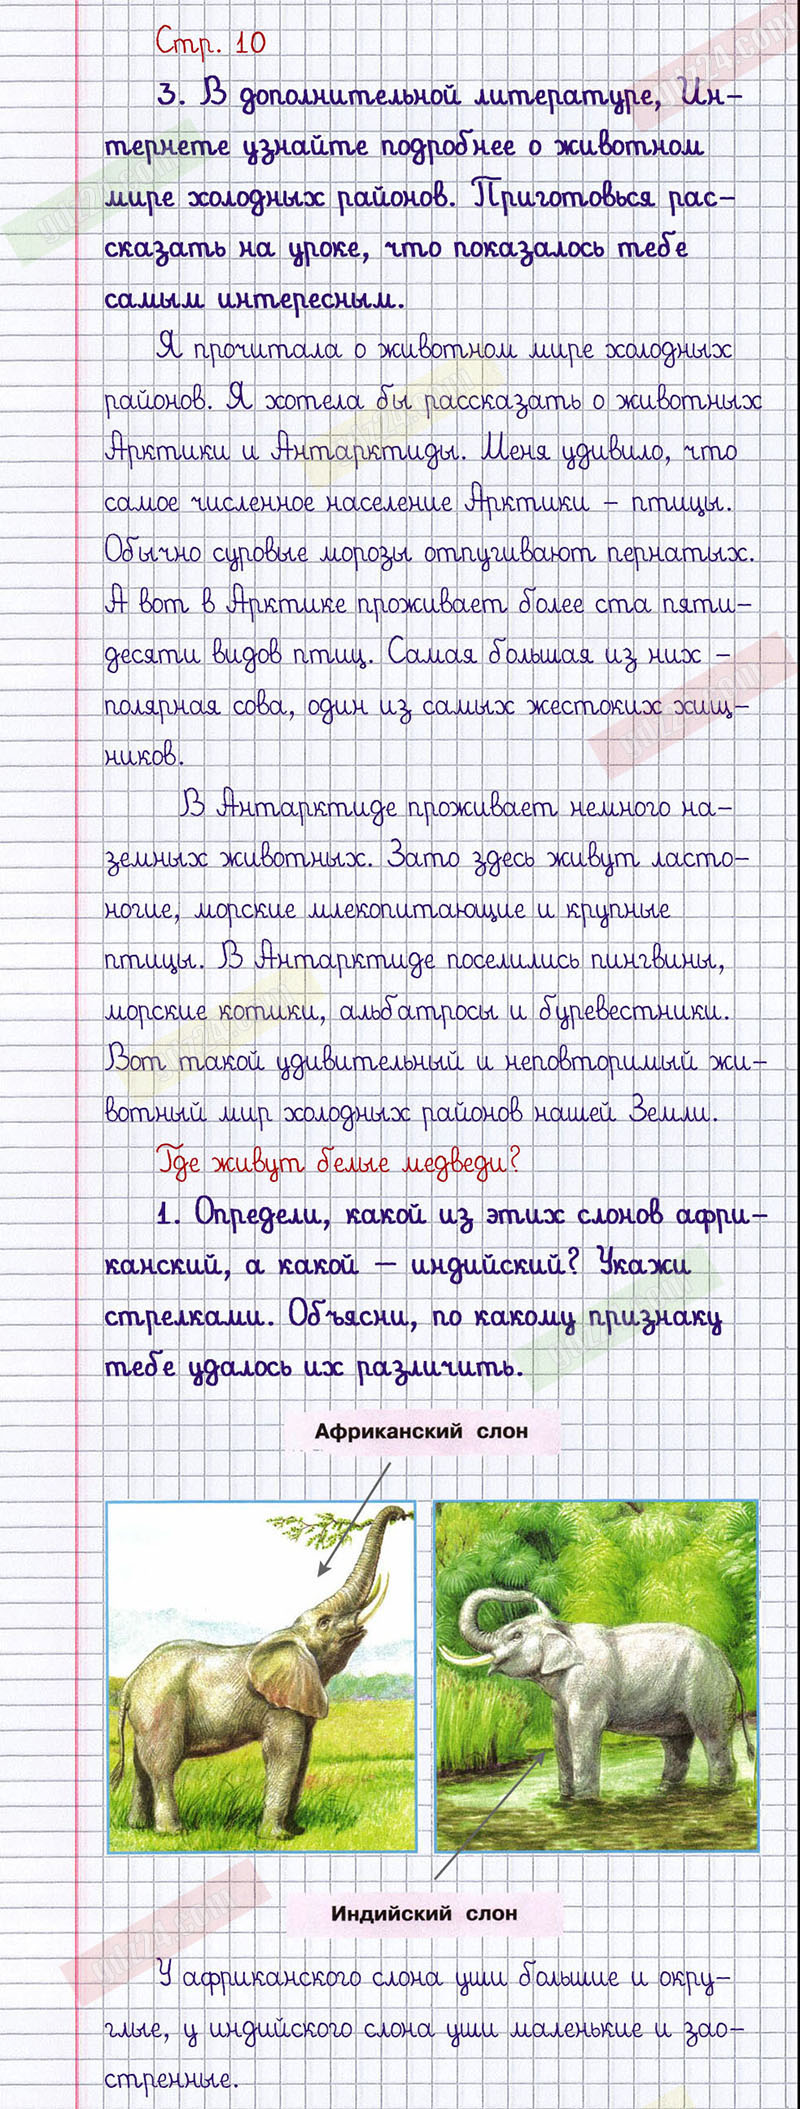 Стр. 10
gdz24.com
3. В дополнительной литературе, Ин-
тернете узнайте подробнее о животном
gdz24.com
мире холодных районов. Приготовься рас-
сказать на уроке, что показалось тебе
самым интересным.
Я прочитала о животном мире холодных
районов. Я хотела бы рассказать о животных
gdz24.com
Арктики и Антарктиды. Меня удивило, что
самое численное население Арктики – птицы.
Обычно суровые морозы отпугивают пернатых.
А вот в Арктике проживает более ста пяти-
десяти видов птиц. Самая большая из них –
полярная сова, один из самых жестоких хищ-
gdz24.com
ников.
В Антарктиде проживает немного на-
земных животных. Зато здесь живут ласто-
ногие, морские млекопитающие и крупные
птицы. В Антарктиде поселились пингвины,
морские котики, альбатросы и буревестники.
gdz24.com
Вот такой удивительный и неповторимый жи-
вотный мир холодных районов нашей Земли.
Где живут белые медведи?
1. Определи, какой из этих слонов афри-
канский, а какой – индийский? Укажи
стрелками. Объясни, по какому признаку
gdz24.com
тебе удалось их различить.
Африканский слон
Индийский слон
gdz24.com
У африканского слона уши большие и окру-
глые, у индийского слона уши маленькие и зао-
стренные.